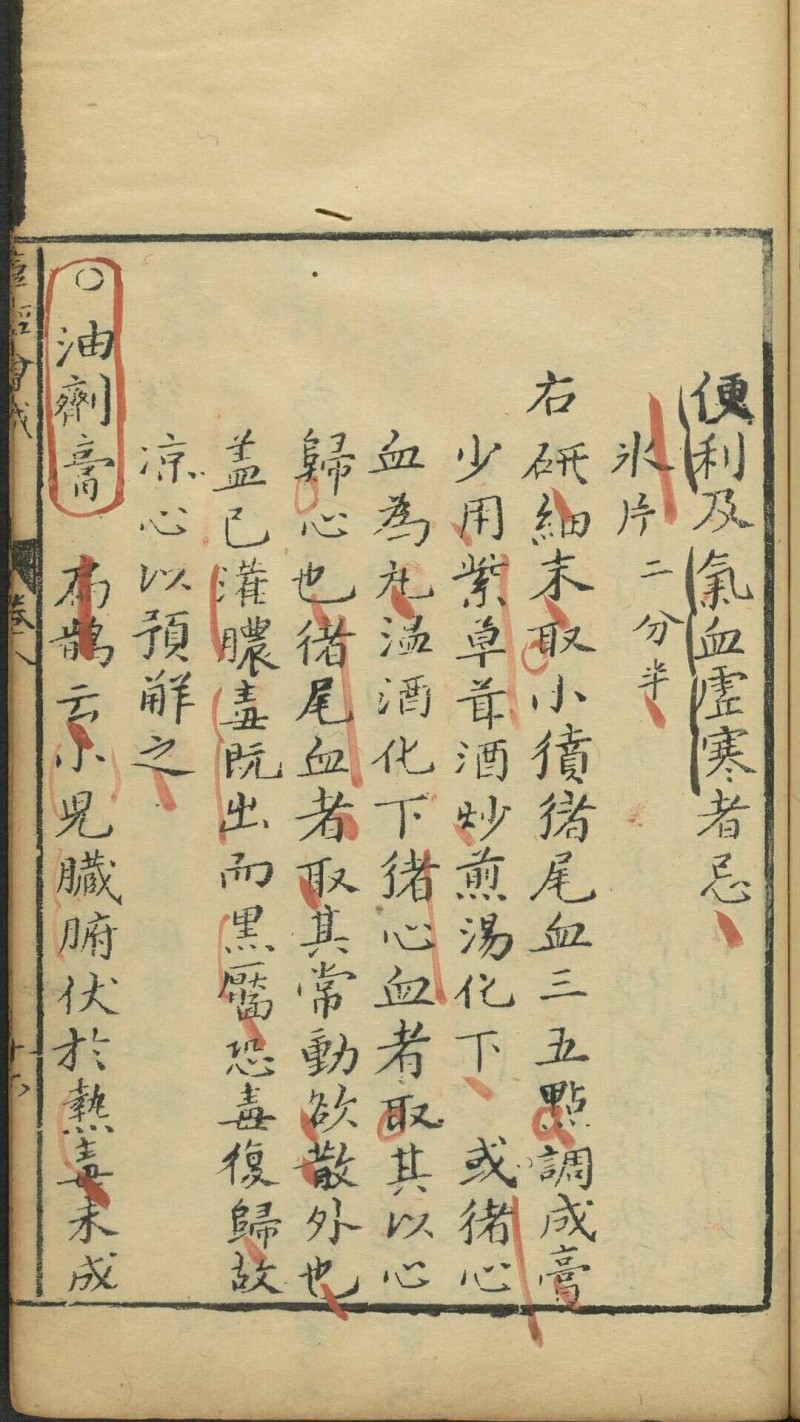 便利及氣血虛寒者忌
氷片二分半
右硏細末取小獖猪尾血三五點調成膏
少用紫草茸酒炒煎湯化下 或猪心
血為丸溫酒化下猪心血者取其以心
歸心也猪尾血者取其常動欲散外也
盖已灌膿毒旣出而黒黶恐毒復歸故
凉心以預觧之
○油劑膏 扁鵲云小兒臟腑伏於熱毒未成
卷八